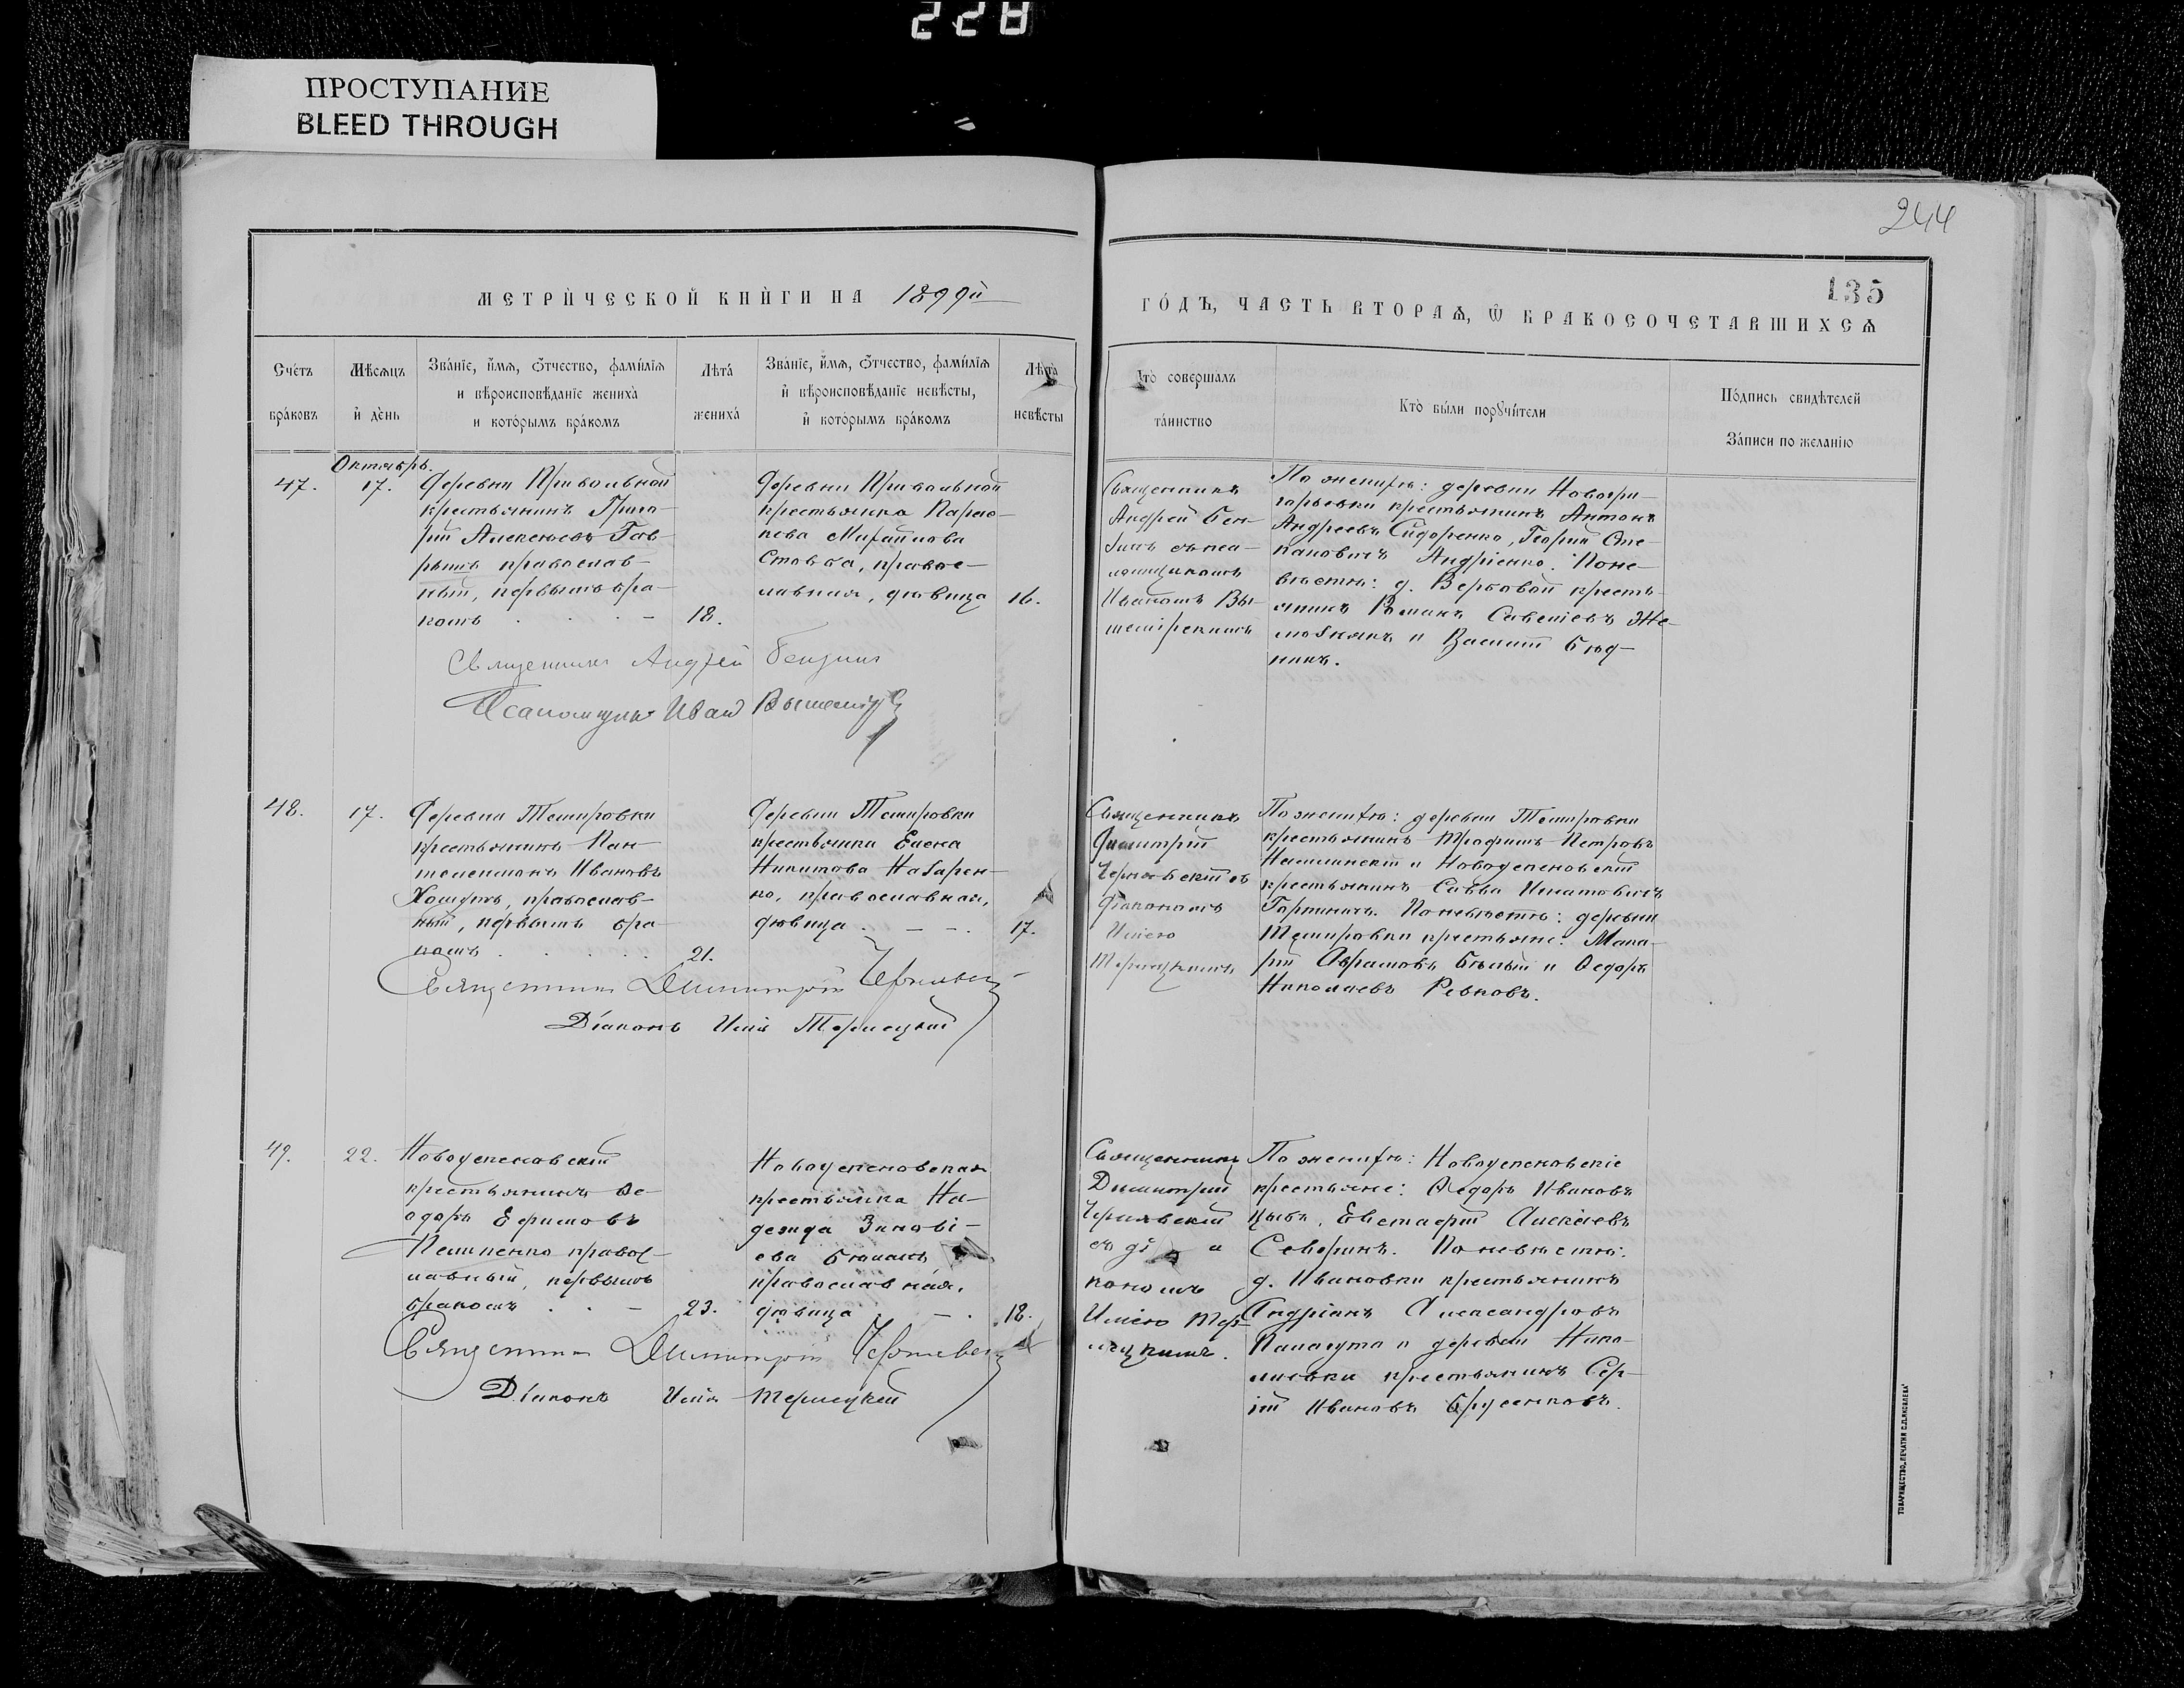 228
ПРОСТУПАНИЕ
BLEED THROUGH
244
135
МЕТРИ́ЧЕСКОЙ КНИ́ГИ НА 1899й
ГО́ДЪ, ЧАСТЬ ВТОРАѦ, Ѡ БРАКОСОЧЕТАВШИХСѦ
Сче́тъ
бра́ковъ
Мѣ́сѧцъ
и҆ де́нь
Зва́нїе, и҆́мѧ, ѻ҆́тчество, фамѝлїѧ
и вѣроисповѣ́данїе жениха̀
и кото́рымъ бра́комъ
Лѣта̀
жениха̀
Зва́нїе, и҆́мѧ, ѻ҆́тчество, фамѝлїѧ
и҆ вѣроисповѣ́данїе невѣ́сты,
и҆ кото́рымъ бра́комъ
Лѣта̀
невѣ́сты
Кто̀ соверша́лъ
та́инство
Кто̀ бы́ли порꙋчи́тели
По́дпись свидѣ́телей
За́писи по жела́нїю
Октябрь.
47.
17.
Деревни Привольной
крестьянинъ Григо-
рій Алексѣевъ Гав-
рышъ православ-
ный, первымъ бра-
комъ . . . -
18.
Деревни Привольной
крестьянка
Михайлова
правос-
лавная, дѣвица
16.
Священникъ
Андрей Бен-
зинъ съ пса-
ломщикомъ
Иваномъ Вы-
По женихѣ: деревни Новогри-
горьевки крестьянинъ Антонъ
Андреевъ Сидоренко, Георгій Сте-
пановичъ Андріенко. По не-
вѣстѣ: д. Вербовой кресть-
янинъ Романъ Савеліевъ Же-
и Василій Буд-
никъ.
Священникъ Андрей Бензинъ
Псаломщикъ Иван
48.
17.
Деревни Темировки
крестьянинъ Пан-
телеимонъ Ивановъ
православ-
ный, первымъ бра-
комъ . . . . .
21.
Деревни Темировки
крестьянка Елена
Никитова Назарен-
ко, православная,
дѣвица . - - .
17.
Священникъ
Димитрій
Чернявскій съ
діакономъ
Иліею
Термецкимъ
По женихѣ: деревни Темировки
крестьянинъ Трофимъ Петровъ
и Новоуспеновскій
крестьянинъ Савва Игнатовичъ
По невѣстѣ: деревни
Темировки крестьяне: Мака-
рій Аврамовъ Бѣлый и Ѳедоръ
Николаевъ Ревковъ.
Священникъ Димитрій Чернявскій
Діаконъ Илія Термецкій
49.
22.
Новоуспеновскій
крестьянинъ Ѳе-
одоръ Ефимовъ
правос-
лавный, первымъ
бракомъ . . -
23.
Новоуспеновская
крестьянка На-
дежда Зинові-
ева
православная,
дѣвица . - .
18.
Священникъ
Димитрій
Чернявскій
съ діа
кономъ
Иліею Тер-
мецкимъ.
По женихѣ: Новоуспеновскіе
крестьяне: Ѳедоръ Ивановъ
Цыбъ, Евстафій Алексѣевъ
Северинъ. По невѣстѣ:
д. Ивановки крестьянинъ
Андріанъ Александровъ
и деревни Нико-
лаевки крестьянинъ Сер-
гій Ивановъ Брусенковъ.
Священникъ Димитрій Чернявскій
Діаконъ Илія Термецкій
ТОВАРИЩЕСТВО „ПЕЧАТНЯ С.П.ЯКОВЛЕВА"